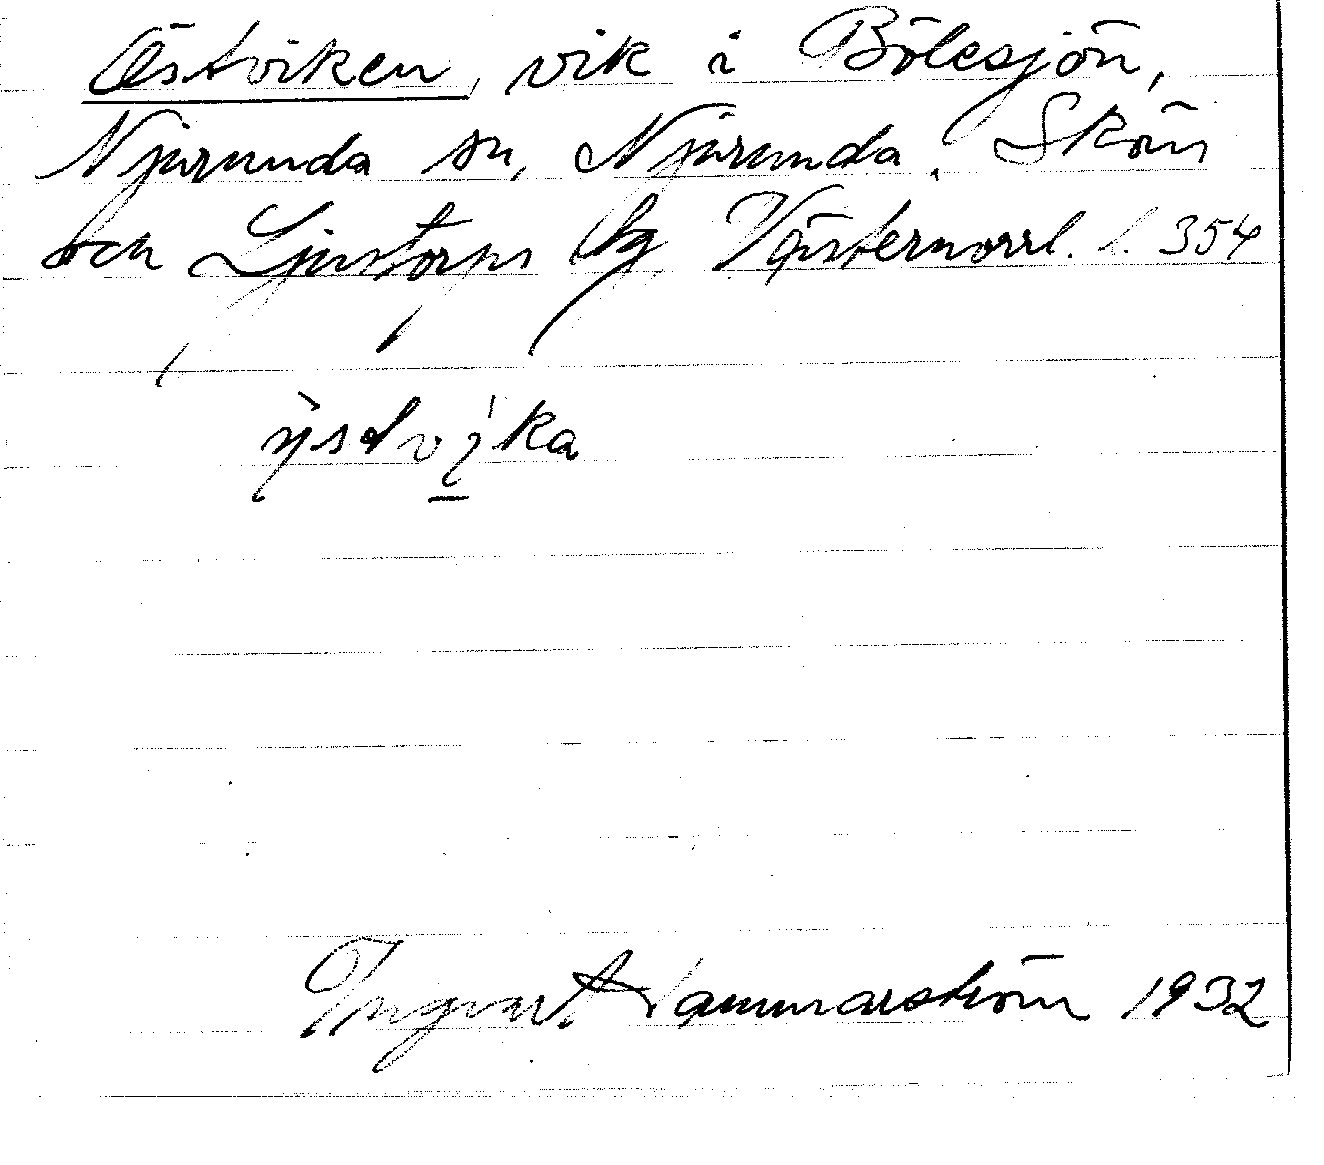 Östviken, vik i Bölesjön,
Njurunda sn, Njurunda, Sköns
och Ljustorps tg Västernorrl. l. 354
Ingvart Hammarström 1932